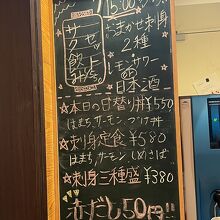 15:00
サク
ゼッ
飲上
おまかせ刺身
2種
サワー
日本酒
☆本日の日替り丼¥550
はまち、サーモン、づけ丼
☆刺身定食¥580
はまち、サーモン、しめさば
☆刺身三種盛¥380
赤だし50円!!